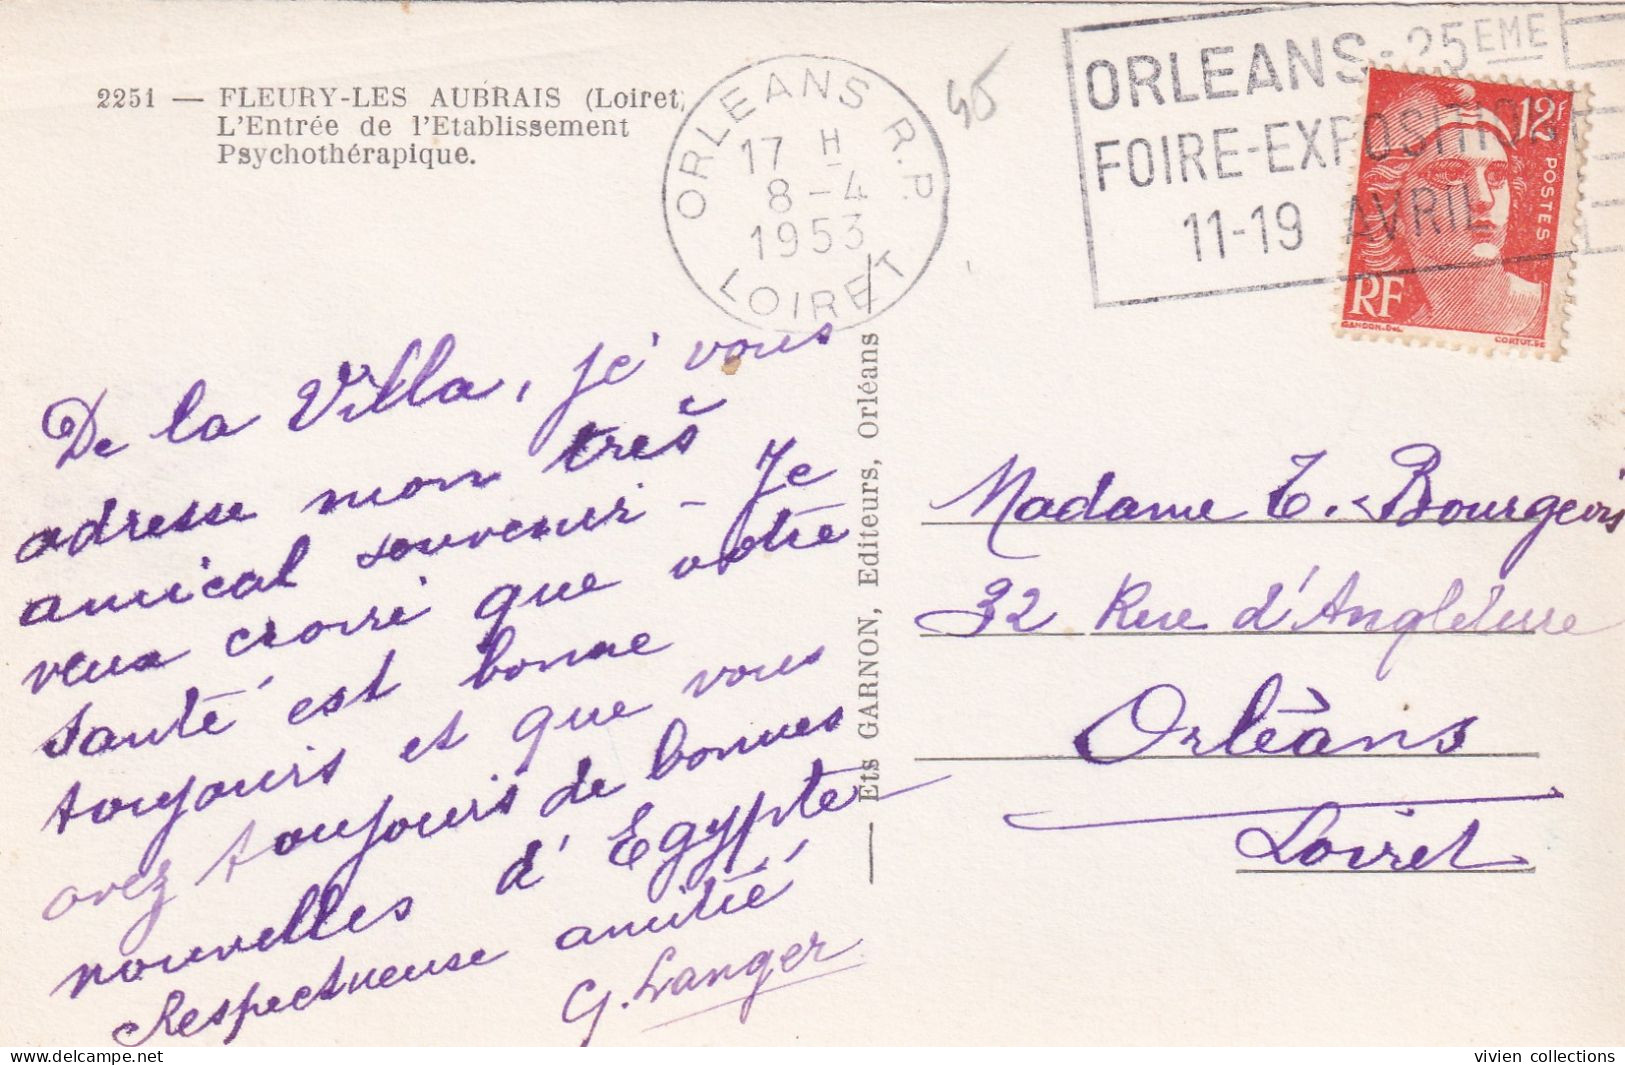 2251 — FLEURY-LES AUBRAIS (Loiret)
L'Entrée de l'Etablissement
Psychothérapique.
ORLEANS R.P.
17 H
8-4
1953
LOIRET
45
ORLEANS-25EME
FOIRE-EXPOSITION
11-19 AVRIL
12F
POSTES
RF
GANDON-DEL
CORTOT-SC
De la Villa, je vous
adresse mon très
amical souvenir - Je
veux croire que votre
santé est bonne
toujours et que vous
avez toujours de bonnes
nouvelles d'Egypte
Respectueuse amitié
G. Langer
Ets GARNON, Editeurs, Orléans
Madame T. Bourgeois
32 Rue d'Angleterre
Orléans
Loiret
vivien collections
delcampe.net